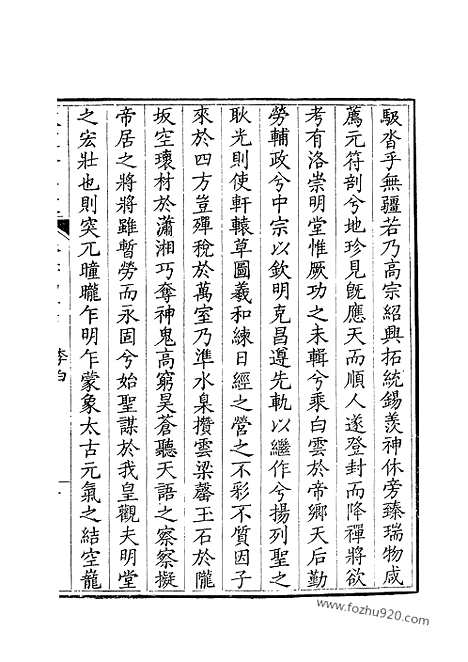 馺沓乎無疆若乃高宗紹興拓統錫羨神休旁臻瑞物咸
薦元符剖兮地珍見旣應天而順人遂登封而降禪將欲
考有洛崇明堂惟厥功之未輯兮乘白雲於帝鄉天后勤
勞輔政兮中宗以欽明克昌遵先軌以繼作兮揚列聖之
耿光則使軒轅草圖羲和練日經之營之不彩不質因子
來於四方豈殫稅於萬室乃準水臬攢雲梁罄玉石於隴
坂空瓌材於瀟湘巧奪神鬼高窮昊蒼聽天語之察察擬
帝居之將將雖暫勞而永固兮始聖謀於我皇觀夫明堂
之宏壯也則突兀曈曨乍明乍蒙象太古元氣之結空巃
李白
www.fozhu920.com